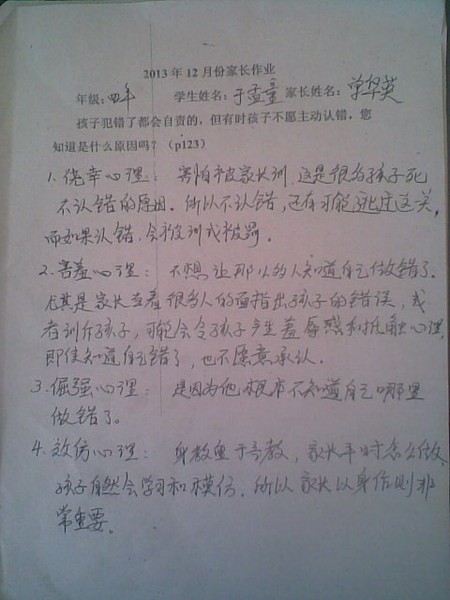 2013年12月份家长作业
年级：四年 学生姓名：于孟童 家长姓名：单华英
孩子犯错了都会自责的，但有时孩子不愿主动认错，您
知道是什么原因吗？（p123）
1、侥幸心理： 害怕被家长训，这是很多孩子死
不认错的原因。所以不认错，还有可能逃过这关，
而如果认错，会被训或被罚。
2.害羞心理： 不想让那么的人知道自己做错了。
尤其是家长当着很多人的面指出孩子的错误，或
者训斥孩子，可能会令孩子产生羞辱感和抵触心理，
即使知道自己错了，也不愿意承认。
3.倔强心理： 是因为他根本不知道自己哪里
做错了。
4.效仿心理： 身教重于言教，家长平时怎么做，
孩子自然会学习和模仿，所以家长以身作则非
常重要。